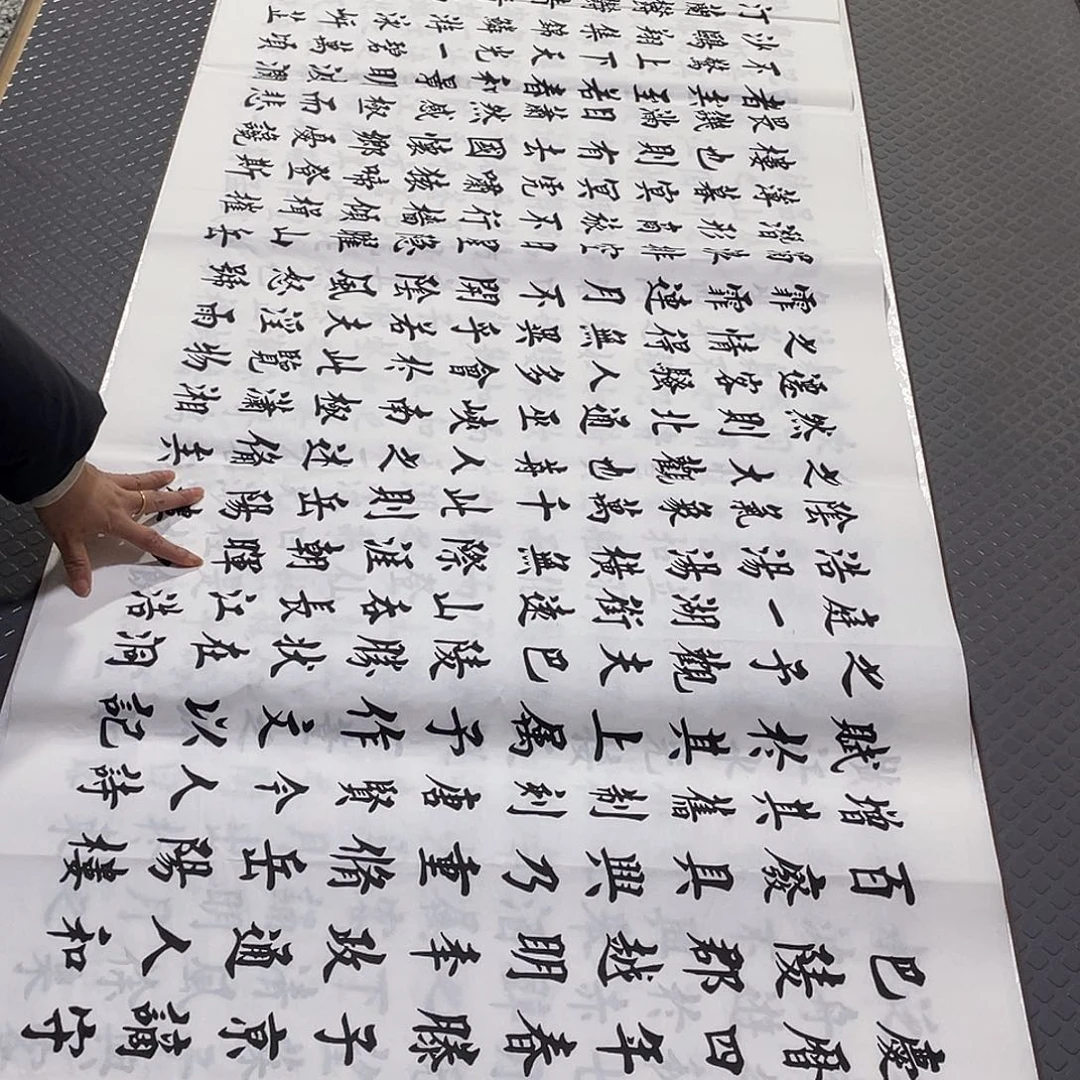 慶曆四年春滕子京謫守
巴陵郡越明年政通人和
百廢具興乃重脩岳陽樓
增其舊制刻唐賢今人詩
賦於其上屬予作文以記
之予觀夫巴陵勝狀在洞
庭一湖銜遠山吞長江浩
浩湯湯橫無際涯朝暉
陰氣象萬千此則岳陽
之大觀也前人之述俻矣
然則北通巫峽南極瀟湘
遷客騷人多會於此覽物
之情得無異乎若夫淫雨
霏霏連月不開陰風怒號
濁浪排空日星隱曜山岳
潛形商旅不行檣傾楫摧
薄暮冥冥虎嘯猿啼登斯
樓也則有去國懷鄉憂讒
畏譏滿目蕭然感極而悲
者矣至若春和景明波瀾
不驚上下天光一碧萬頃
沙鷗翔集錦鱗游泳岸芷
汀蘭